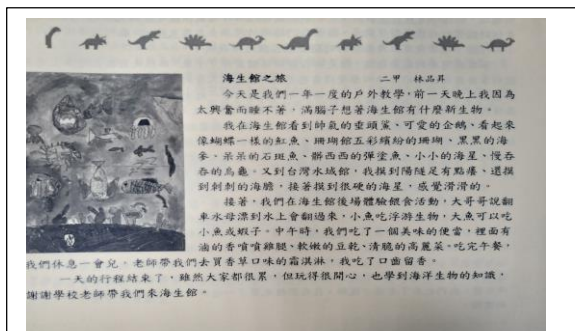 海生館之旅 二甲 林品昇
今天是我們一年一度的戶外教學,前一天晚上我因為
太興奮而睡不著,滿腦子想著海生館有什麼新生物。
我在海生館看到帥氣的垂頭鯊、可愛的企鵝、看起來
像蝴蝶一樣的魟魚、珊瑚館五彩繽紛的珊瑚、黑黑的海
參、呆呆的石斑魚、髒西西的彈塗魚、小小的海星、慢吞
吞的烏龜,又到台灣水域館,我摸到陽隧足有點癢、還摸
到刺刺的海膽,接著摸到很硬的海星,感覺滑滑的。
接著,我們在海生館後場體驗餵食活動,大哥哥說翻
車水母漂到水上會翻過來,小魚吃浮游生物,大魚可以吃
小魚或蝦子。中午時,我們吃了一個美味的便當,裡面有
滷的香噴噴雞腿、軟嫩的豆乾、清脆的高麗菜。吃完午餐,
我們休息一會兒,老師帶我們去買香草口味的霜淇淋,我吃了口齒留香。
一天的行程結束了,雖然大家都很累,但玩得很開心,也學到海洋生物的知識,
謝謝學校老師帶我們來海生館。